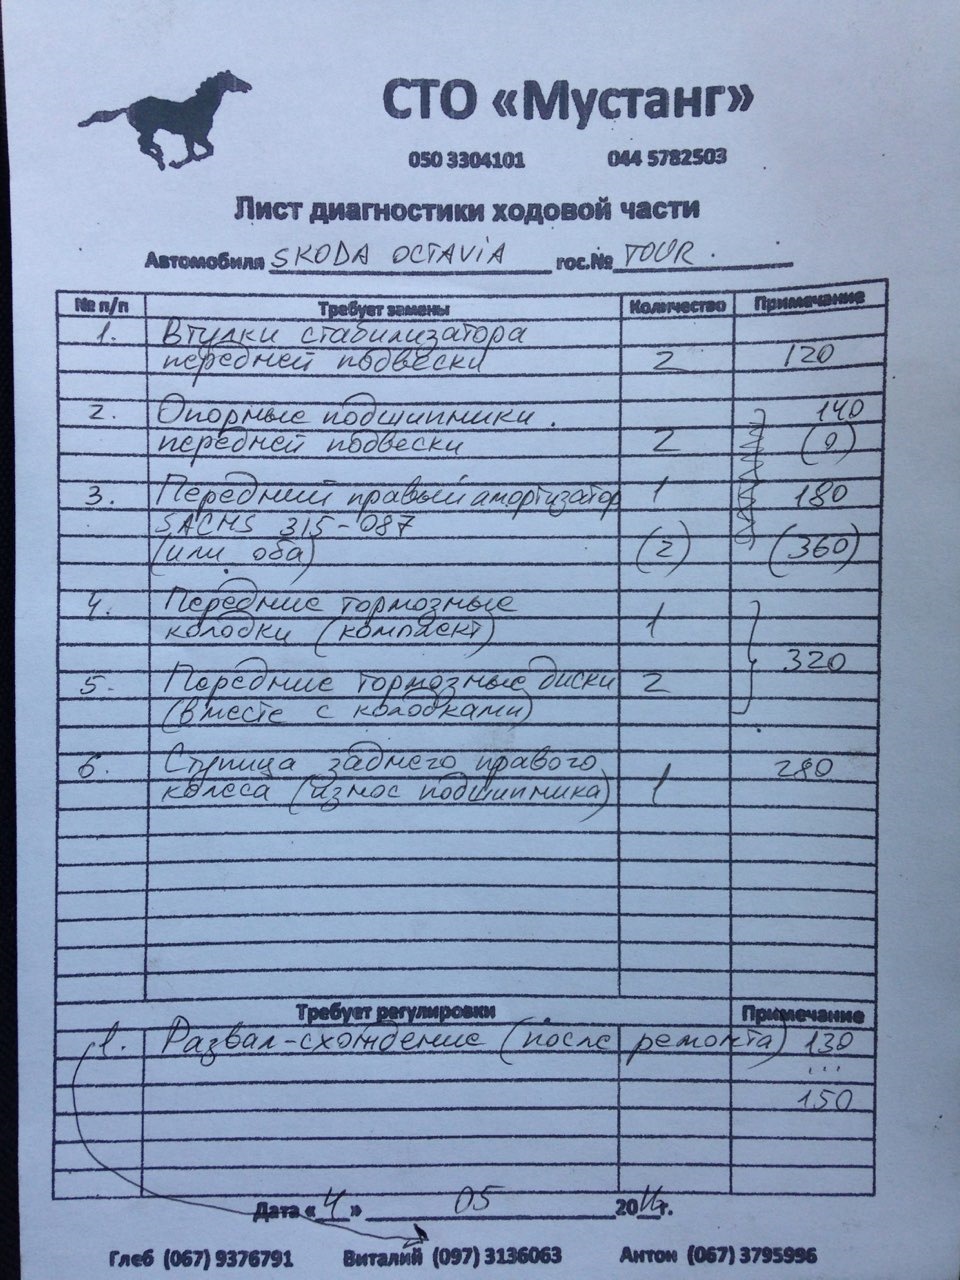 СТО «Мустанг»
050 3304101 044 5782503
Лист диагностики ходовой части
Автомобиля SKODA OCTAVIA гос.№ TOUR.
№ п/п Требует замены Количество Примечание
1. Втулки стабилизатора
передней подвески 2 120
2. Опорные подшипники 140
передней подвески 2
3. Передний правый амортизатор 1 180
SACHS 315-087
(или оба) (2) (360)
4. Передние тормозные
колодки (комплект) 1
320
5. Передние тормозные диски 2
(вместе с колодками)
6. Ступица заднего правого 280
колеса (износ подшипника) 1
Требует регулировки Примечание
1. Развал-схождение (после ремонта) 130
...
150
Дата «4» 05 20 г.
Глеб (067) 9376791 Виталий (097) 3136063 Антон (067) 3795996